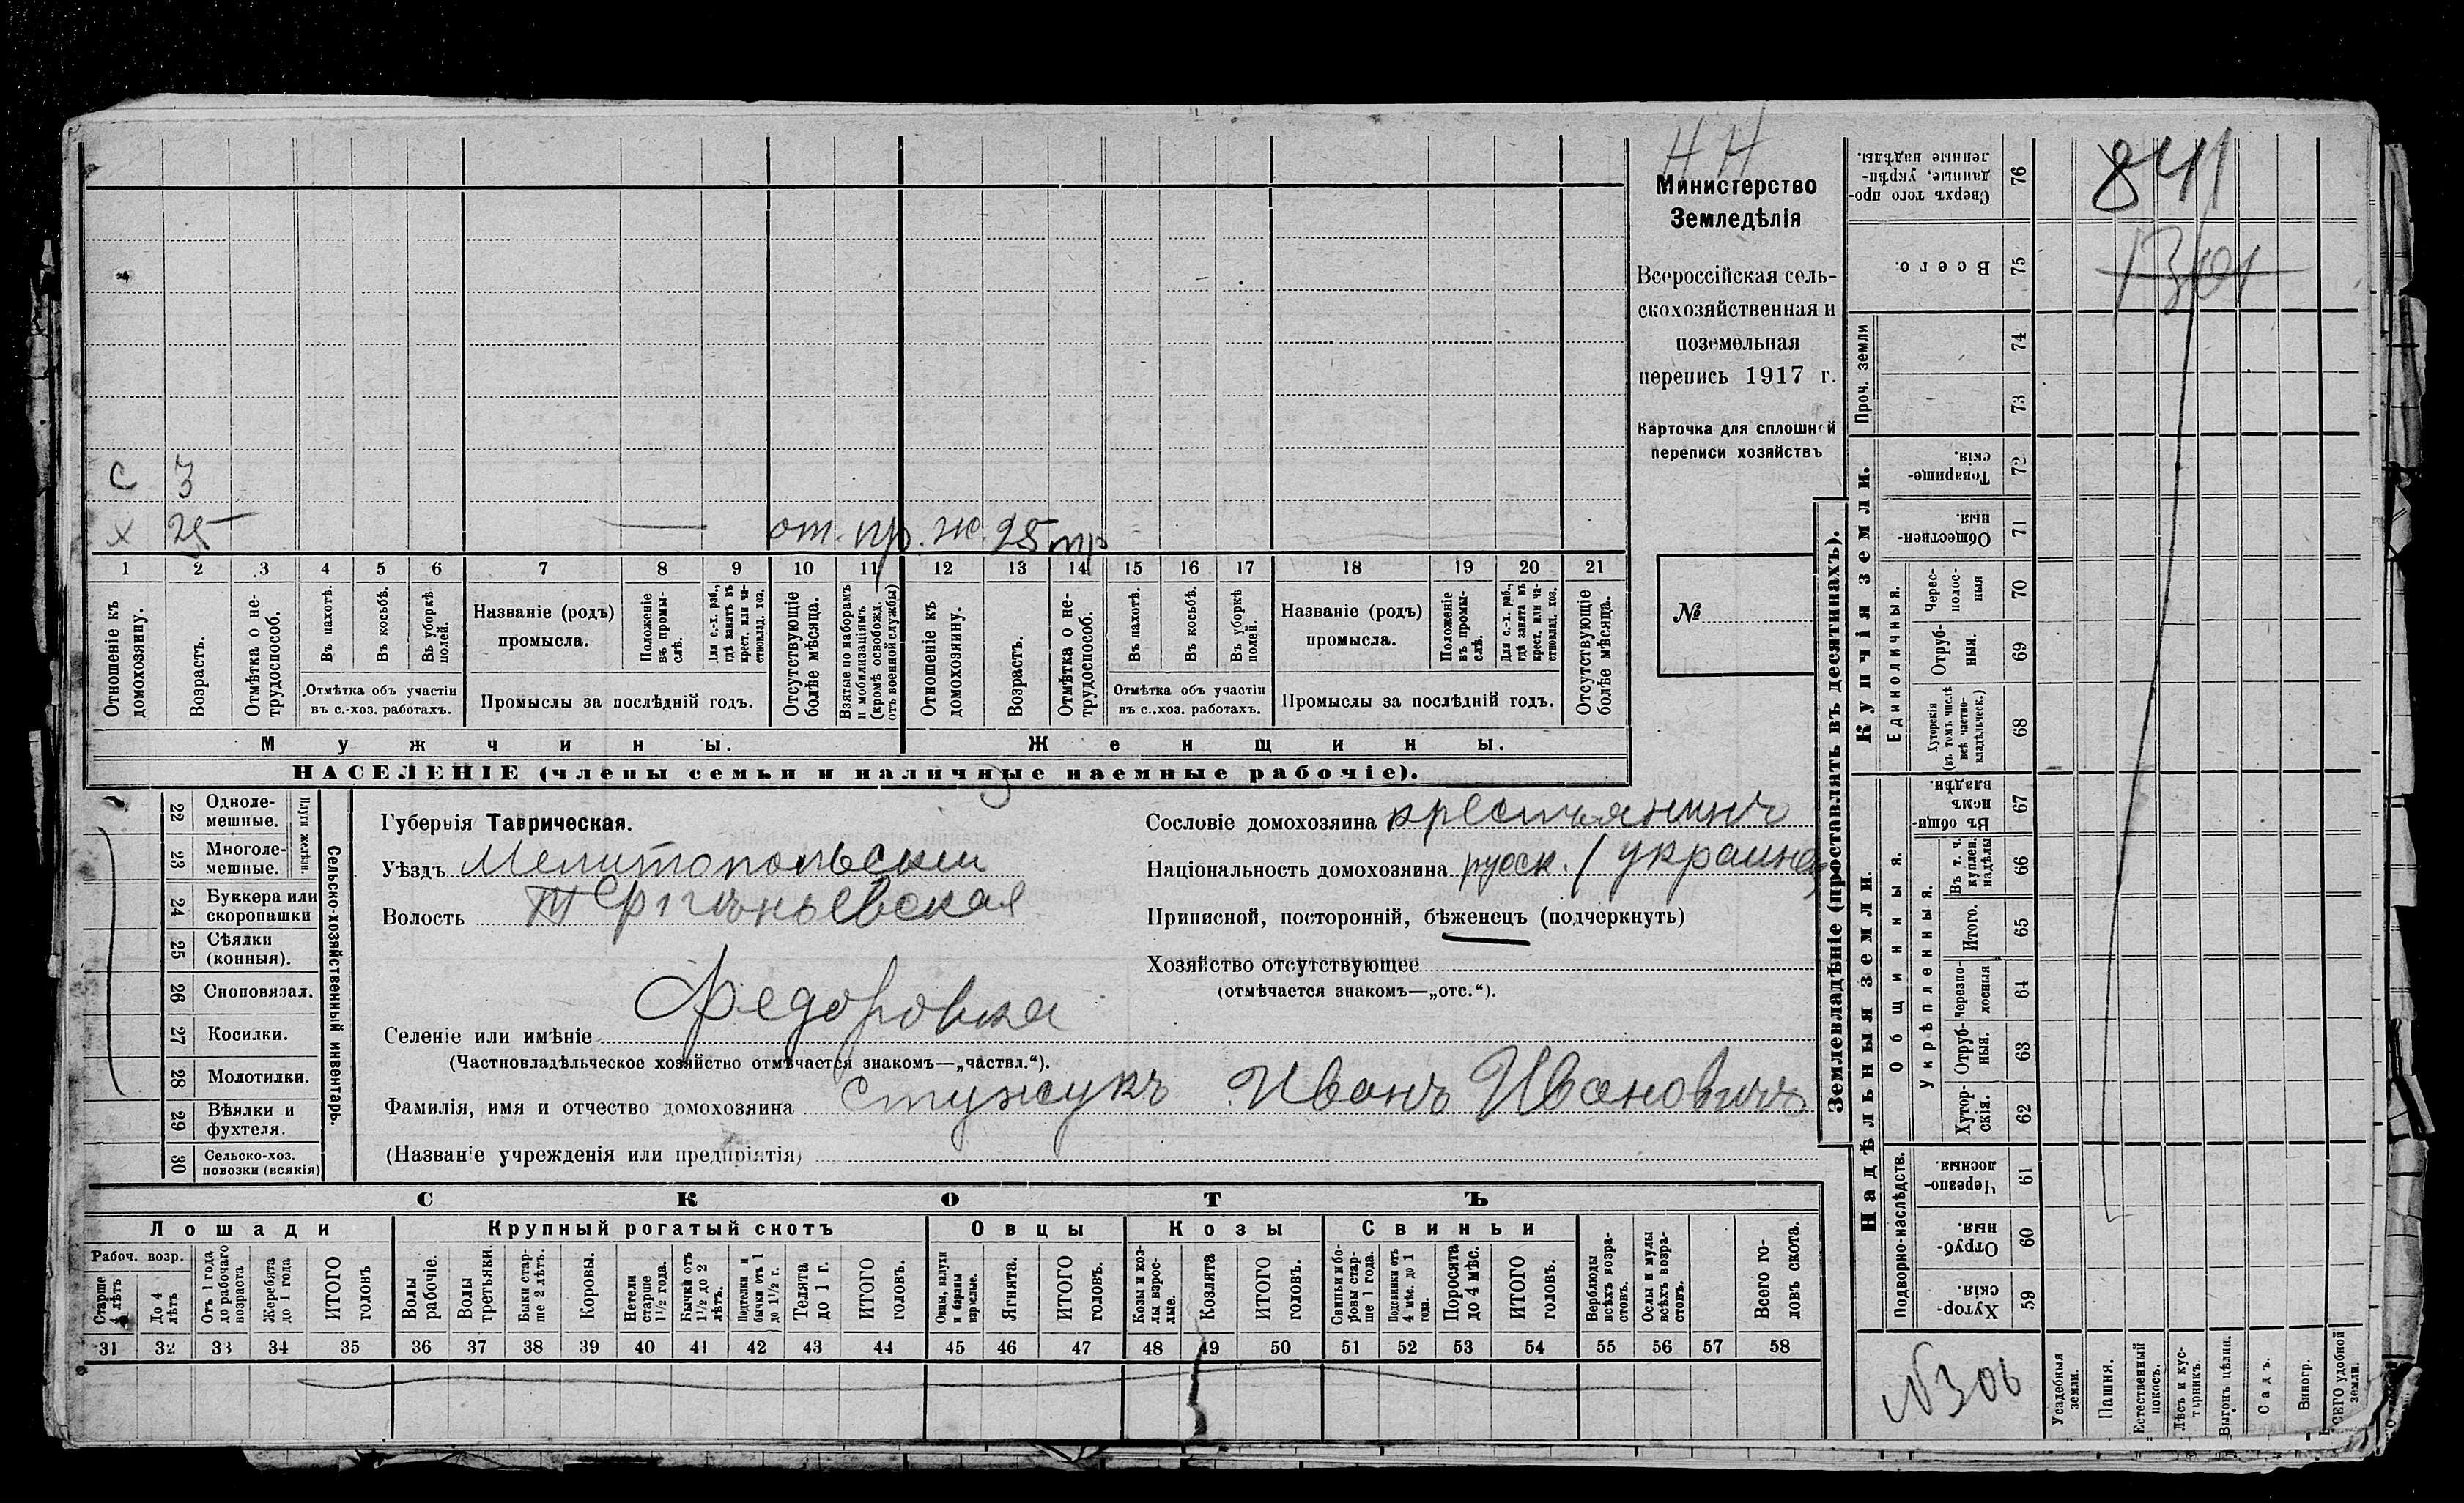 НН
Министерство
Земледѣлія
Всероссійская сель-
скохозяйственная и
поземельная
перепись 1917 г.
Карточка для сплошной
переписи хозяйствъ
№
С 3
х 25 — от. пр. ж. 25 тр
1 2 3 4 5 6 7 8 9 10 11 12 13 14 15 16 17 18 19 20 21
Отношеніе къ домохозяину.
Возрастъ.
Отмѣтка о не-трудоспособ.
Въ пахотѣ.
Въ косьбѣ.
Въ уборкѣ полей.
Названіе (родъ) промысла.
Положеніе въ промы-слѣ.
Для с.-х. раб., гдѣ занятъ въ крест. или ча-стновлад. хоз.
Отсутствующіе болѣе мѣсяца.
Взятые по наборамъ и мобилизаціямъ (кромѣ освобожд. отъ военной службы)
Отношеніе къ домохозяину.
Возрастъ.
Отмѣтка о не-трудоспособ.
Въ пахотѣ.
Въ косьбѣ.
Въ уборкѣ полей.
Названіе (родъ) промысла.
Положеніе въ промы-слѣ.
Для с.-х. раб., гдѣ занята въ крест. или ча-стновлад. хоз.
Отсутствующіе болѣе мѣсяца.
Отмѣтка объ участіи въ с.-хоз. работахъ.
Промыслы за послѣдній годъ.
Отмѣтка объ участіи въ с.-хоз. работахъ.
Промыслы за послѣдній годъ.
Мужчины.
Женщины.
НАСЕЛЕНІЕ (члены семьи и наличные наемные рабочіе).
22 Одноле-мешные.
23 Многоле-мешные.
Плуги желѣзн.
24 Буккера или скоропашки
25 Сѣялки (конныя).
26 Сноповязал.
27 Косилки.
28 Молотилки.
29 Вѣялки и фухтеля.
30 Сельско-хоз. повозки (всякія)
Сельско-хозяйственный инвентарь.
Губернія Таврическая.
Уѣздъ Мелитопольскій
Волость
Селеніе или имѣніе Федоровка
(Частновладѣльческое хозяйство отмѣчается знакомъ—„частвл.“).
Фамилія, имя и отчество домохозяина Стужукъ Иванъ Ивановичъ
(Названіе учрежденія или предпріятія)
Сословіе домохозяина крестьянинъ
Національность домохозяина русск. / украинец
Приписной, посторонній, бѣженецъ (подчеркнуть)
Хозяйство отсутствующее
(отмѣчается знакомъ—„отс.“).
СКОТЪ
Лошади
Крупный рогатый скотъ
Овцы
Козы
Свиньи
Рабоч. возр.
Старше 4 лѣтъ
До 4 лѣтъ
Отъ 1 года до рабочаго возраста
Жеребята до 1 года
ИТОГО головъ
Волы рабочіе.
Волы третьяки.
Быки стар-ше 2 лѣтъ.
Коровы.
Нетели старше 1½ года.
Бычки отъ 1½ до 2 лѣтъ.
Подтелки и бычки отъ 1 до 1½ г.
Телята до 1 г.
ИТОГО головъ.
Овцы, валухи и бараны взрослые.
Ягнята.
ИТОГО головъ.
Козы и коз-лы взрос-лые.
Козлята
ИТОГО головъ.
Свиньи и бо-ровы стар-ше 1 года.
Подсвинки отъ 4 мѣс. до 1 года.
Поросята до 4 мѣс.
ИТОГО головъ.
Верблюды всѣхъ возра-стовъ.
Ослы и мулы всѣхъ возра-стовъ.
Всего го-ловъ скота.
31 32 33 34 35 36 37 38 39 40 41 42 43 44 45 46 47 48 49 50 51 52 53 54 55 56 57 58
Землевладѣніе (проставлять въ десятинахъ).
Надѣльныя земли.
Купчія земли.
Проч. земли
Подворно-наслѣдств.
Общинныя.
Укрѣпленныя.
Единоличныя.
Хутор-скія. 59
Отруб-ныя. 60
Черезпо-лосныя. 61
Хутор-скія. 62
Отруб-ныя. 63
Черезпо-лосныя 64
Итого. 65
Въ т. ч. куплен. надѣлы 66
Въ общи-номъ владѣн. 67
Хуторскія (въ томъ числѣ всѣ частно-владѣльческ.) 68
Отруб-ныя. 69
Черес-полос-ныя 70
Обществен-ныя. 71
Товарище-скія. 72
73
74
Всего. 75
Сверхъ того про-данные, укрѣп-ленные надѣлы. 76
841
1301
№306
Усадебныя земли.
Пашня.
Естественный покосъ.
Лѣсъ и кус-тарникъ.
Выгонъ цѣлин.
Садъ.
Виногр.
ВСЕГО удобной земли.